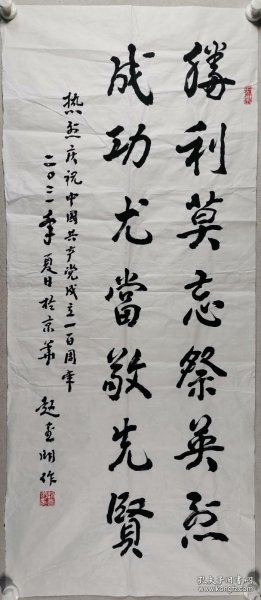 勝利莫忘祭英烈
成功尤當敬先賢
热烈庆祝中国共产党成立一百周年
二〇二一年夏日於京華
趙 作
孔夫子旧书网
www.kongfz.com